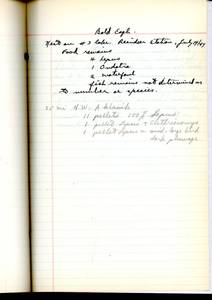 Bald Eagle.
Nest on #3 lake. Reindeer Station, July
Food remains
4 Lepus
1 Ondatra
2 waterfowl
fish remains not determined as
to number or species.
20 mi N.W. Aklavik
11 pellets 100% Lepus
1 pellet Lepus +
1 pellet Lepus + large bird
dark plumage